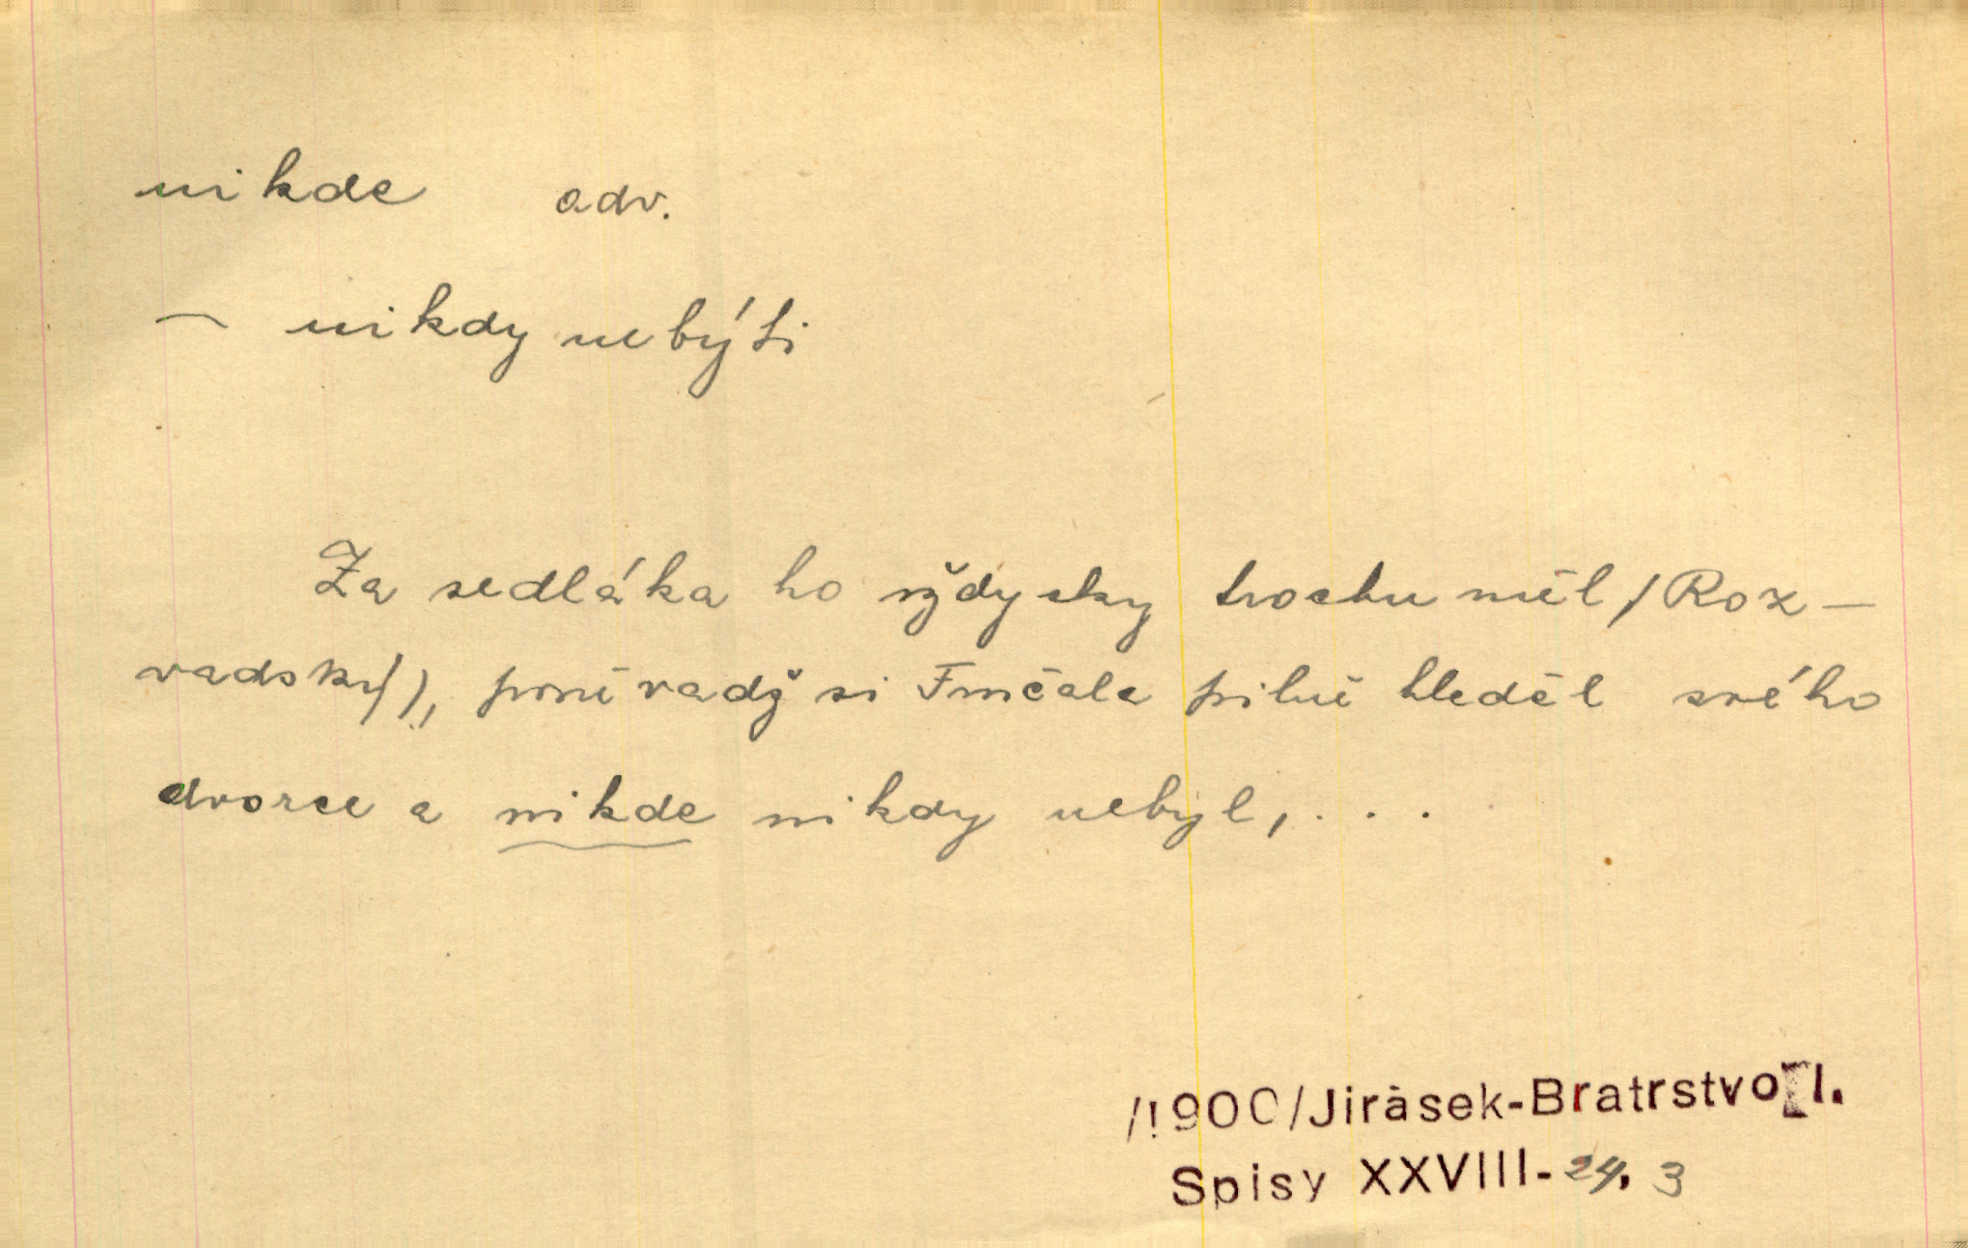 nikde adv.
— nikdy nebýti
Za sedláka ho vždycky trochu měl /Roz-
vadský/), poněvadž si Fmčala pilně hleděl svého
dvorce a nikde nikdy nebyl, . . .
/1900/Jirásek-Bratrstvo I.
Spisy XXVIII-24. 3